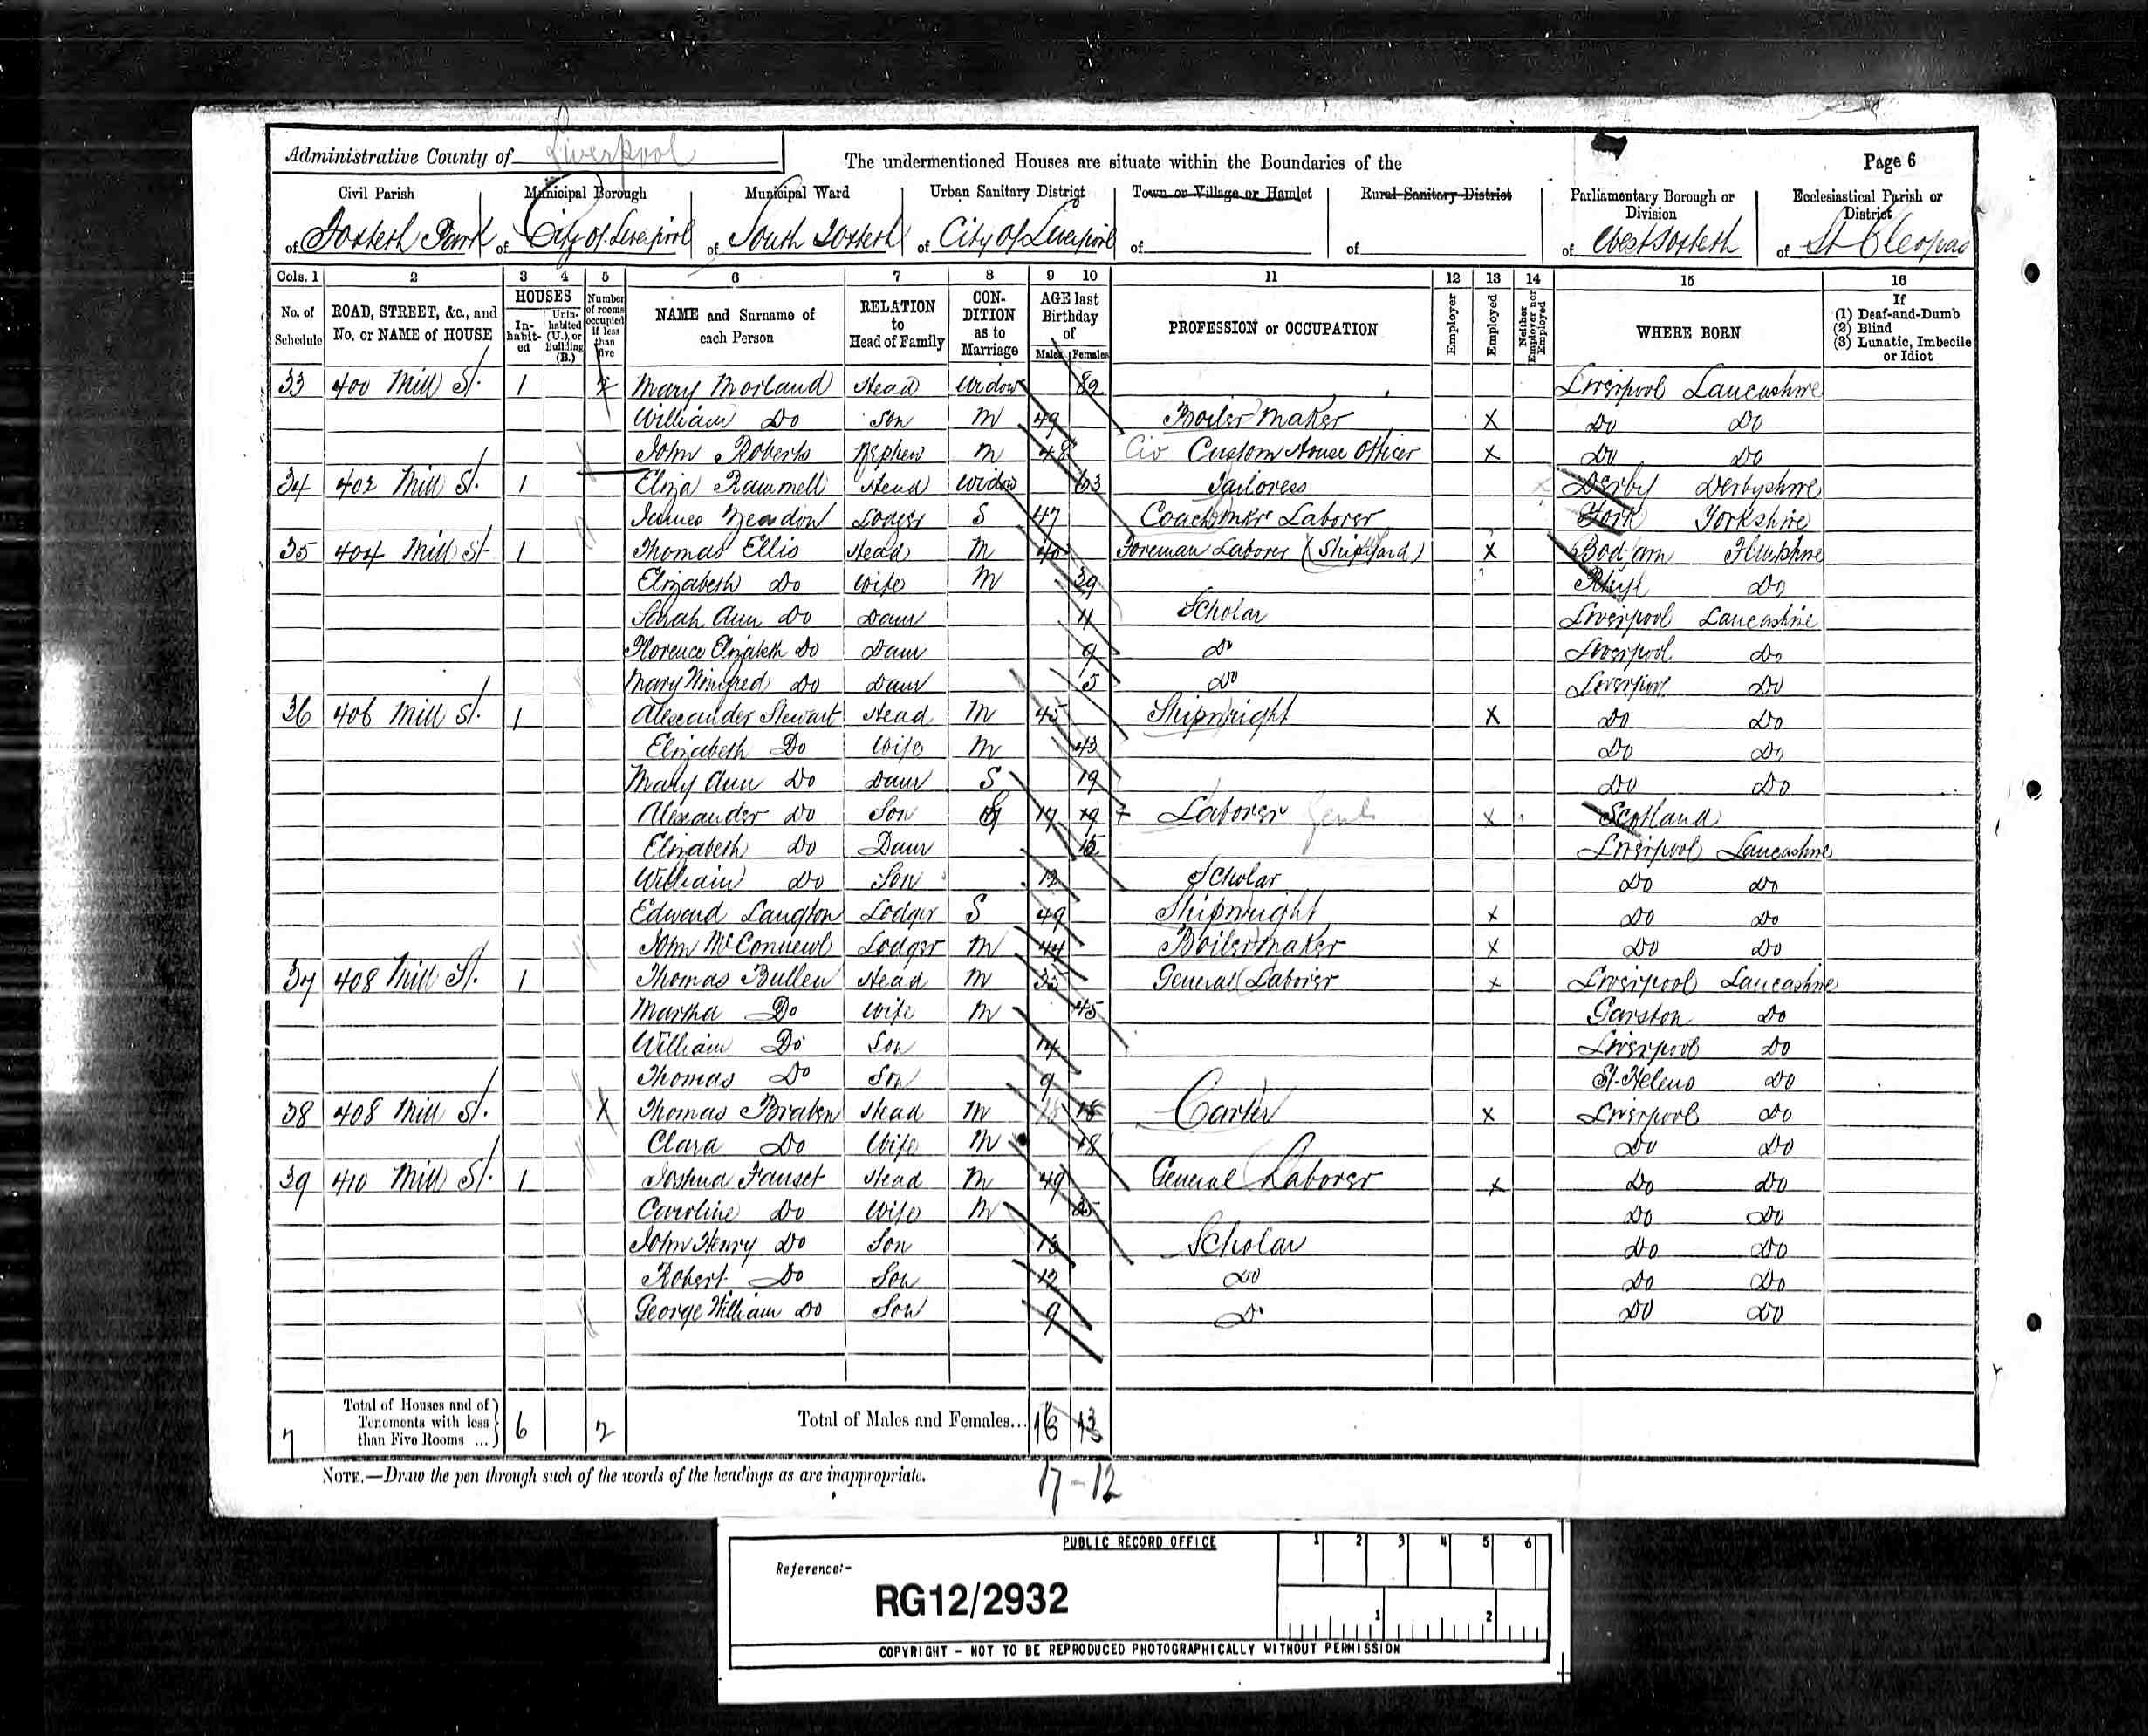 Administrative County of Liverpool
The undermentioned Houses are situate within the Boundaries of the
Page 6
Civil Parish Municipal Borough Municipal Ward Urban Sanitary District Town or Village or Hamlet Rural Sanitary District Parliamentary Borough or Division Ecclesiastical Parish or District
of Toxteth Park of City of Liverpool of South Toxteth of City of Liverpool of of of West Toxteth of St Cleopas
Cols. 1 2 3 4 5 6 7 8 9 10 11 12 13 14 15 16
No. of Schedule ROAD, STREET, &c., and No. or NAME of HOUSE HOUSES Inhabited Uninhabited (U.), or Building (B.) Number of rooms occupied if less than five NAME and Surname of each Person RELATION to Head of Family CONDITION as to Marriage AGE last Birthday of Males Females PROFESSION or OCCUPATION Employer Employed Neither Employer nor Employed WHERE BORN If (1) Deaf-and-Dumb (2) Blind (3) Lunatic, Imbecile or Idiot
33 400 Mill St. 1 Mary Morland Head Widow 82 Liverpool Lancashire
William Do Son M 49 Boiler Maker X Do Do
John Roberts Nephew M 48 Civ Custom House Officer X Do Do
34 402 Mill St. 1 Eliza Rammell Head Widow 63 Tailoress Derby Derbyshire
James Lodger S 47 Coach Mkr Laborer York Yorkshire
35 404 Mill St 1 Thomas Ellis Head M 40 Foreman Laborer (Ship Yard) X Flintshire
Elizabeth Do Wife M 39 Rhyl Do
Sarah Ann Do Daur 11 Scholar Liverpool Lancashire
Florence Elizabeth Do Daur 9 Do Liverpool Do
Mary Winifred Do Daur 5 Do Liverpool Do
36 406 Mill St. 1 Alexander Stewart Head M 45 Shipwright X Do Do
Elizabeth Do Wife M 43 Do Do
Mary Ann Do Daur S 19 Do Do
Alexander Do Son 17 19 Laborer Genl X Scotland
Elizabeth Do Daur 15 Liverpool Lancashire
William Do Son 12 Scholar Do Do
Edward Langton Lodger S 49 Shipwright X Do Do
John Lodger M 44 Boilermaker X Do Do
37 408 Mill St. 1 Thomas Bullen Head M 35 General Laborer X Liverpool Lancashire
Martha Do Wife M 45 Garston Do
William Do Son 14 Liverpool Do
Thomas Do Son 9 St. Helens Do
38 408 Mill St. X Thomas Braben Head M 18 18 Carter X Liverpool Do
Clara Do Wife M 18 Do Do
39 410 Mill St. 1 Joshua Fauset Head M 49 General Laborer X Do Do
Caroline Do Wife M 35 Do Do
John Henry Do Son 13 Scholar Do Do
Robert Do Son 12 Do Do Do
George William Do Son 9 Do Do Do
7 Total of Houses and of Tenements with less than Five Rooms ... 6 2 Total of Males and Females... 16 13
NOTE.—Draw the pen through such of the words of the headings as are inappropriate.
17-12
PUBLIC RECORD OFFICE
1 2 3 4 5 6
Reference:-
RG12/2932
1 2
COPYRIGHT - NOT TO BE REPRODUCED PHOTOGRAPHICALLY WITHOUT PERMISSION